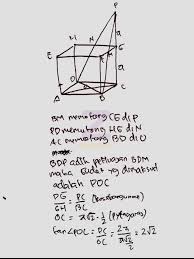 P
a
M
N
H
G
E
F
a
D
C
A
B
BM memotong CG di P
PD memotong HG di N
AC memotong BD di O
BDP adlh perluasan BDM
maka sudut yg dimaksud
adalah POC
PG/GM = PC/BC (kesebangunan)
OC = a√2 · 1/2 (Pythagoras)
tan∠POC = PC/OC = 2a/(a√2/2) = 2√2